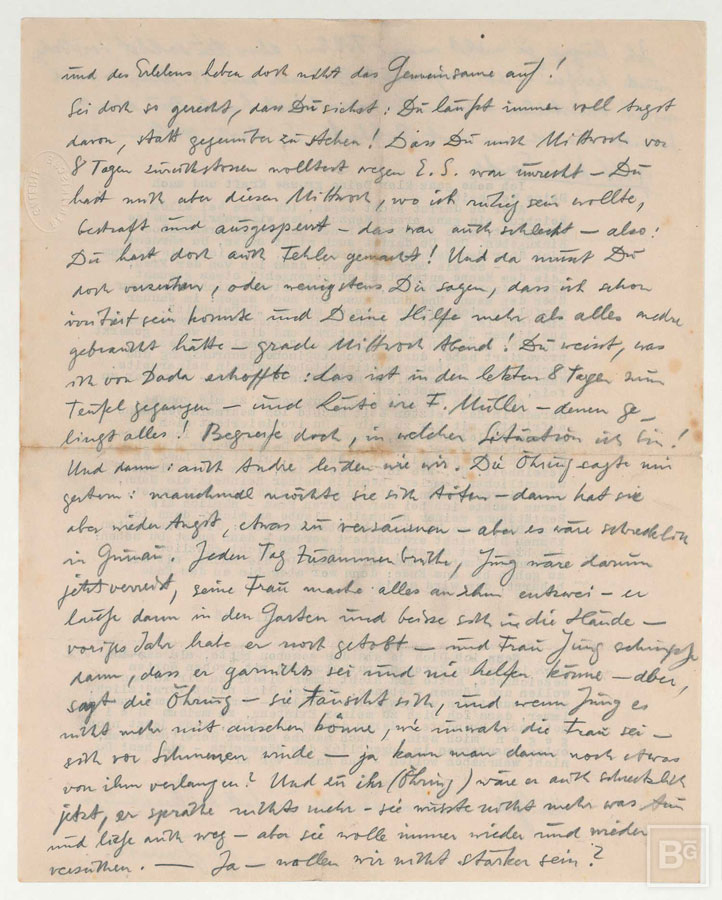 und des Erlebens heben doch nicht das Gemeinsame auf!
Sei doch so gerecht, dass Du siehst: Du läufst immer voll Angst
davon, statt gegenüber zu stehen! Dass Du mich Mittwoch vor
8 Tagen zurückstossen wolltest wegen E. S. war unrecht – Du
hast mich aber diesen Mittwoch, wo ich ruhig sein wollte,
bestraft und ausgesperrt – das war auch schlecht – also:
Du hast doch auch Fehler gemacht! Und da musst Du
doch verzeihen, oder wenigstens Dir sagen, dass ich schon
verwirrt sein konnte und Deine Hilfe mehr als alles andre
gebraucht hätte – grade Mittwoch Abend! Du weisst, was
ich von Dada erhoffte: das ist in den letzten 8 Tagen zum
Teufel gegangen – und Leute wie F. Müller – denen ge-
lingt alles! Begreife doch, in welcher Situation ich bin!
Und dann: auch Andre leiden wie wir. Die Öhring sagte mir
gestern: manchmal möchte sie sich töten – dann hat sie
aber wieder Angst, etwas zu versäumen – aber es wäre schrecklich
in Grünau. Jeden Tag Zusammenbrüche, Jung wäre darum
jetzt verreist, seine Frau mache alles an ihm entzwei – er
laufe dann in den Garten und beisse sich in die Hände –
voriges Jahr habe er noch getobt – und Frau Jung schimpfe
dann, dass er garnichts sei und nie helfen könne – aber,
sagt die Öhring – sie täuscht sich, und wenn Jung es
nicht mehr mit ansehen könne, wie unwahr die Frau sei –
sich vor Schmerzen winde – ja kann man dann noch etwas
von ihm verlangen? Und zu ihr (Öhring) wäre er auch schrecklich
jetzt, er spräche nichts mehr – sie wüsste nicht mehr was tun
und liefe auch weg – aber sie wolle immer wieder und wieder
versuchen. — Ja – wollen wir nicht stärker sein?
BG